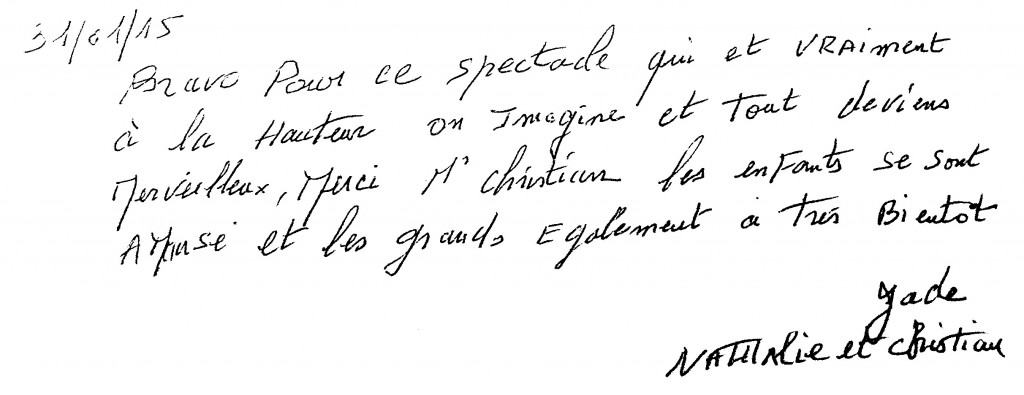 31/01/15
Bravo Pour ce spectacle qui et VRAiment
à la Hauteur on Imagine et Tout deviens
Merveilleux, Merci Mr christian les enfants se sont
AMusé et les grands Egalement à Très Bientot
Jade
NATHAlie et christian